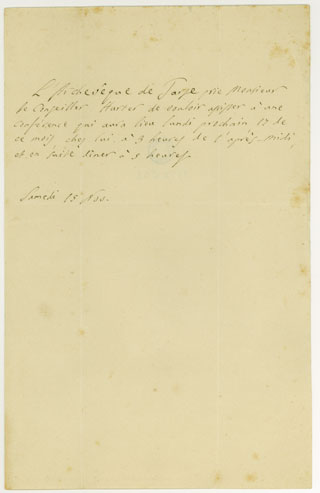 L'Archevêque de Tarse prie Monsieur
le Conseiller Hurter de vouloir assister à une
conférence qui aura lieu lundi prochain 17 de
ce mois chez lui à 3 heures de l'après-midi
et en suite diner à 5 heures.
Samedi 15 Nov.